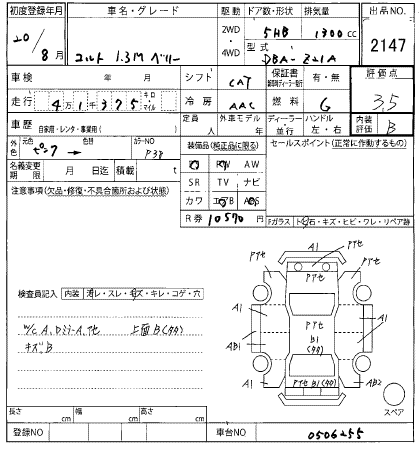 初度登録年月 車名・グレード 駆動 ドア数・形状 排気量 出品NO.
20/8月 コルト 1.3M ベリー 2WD・4WD 5HB 1300cc 2147
型式 DBA-Z21A
車検 年 月 シフト CAT 保証書 有・無 評価点
走行 4万1千375キロ・マイル 冷房 AAC 燃料 G 3.5
車歴 自家用・レンタ・事業用( ) 定員 人 外車モデル 年 ディーラー・並行 ハンドル 左・右 内装評価 B
外色 元色 ピンク → 色替 カラーNO P38 装備品(純正品に限る) セールスポイント(正常に作動するもの)
名義変更期限 月 日迄 積載 t PS PW AW
SR TV ナビ
注意事項(欠品・修復・不具合箇所および状態) カワ エアB ABS
R券 10570円 Fガラス トビ石・キズ・ヒビ・ワレ・リペア跡
A1
PアセA1
検査員記入 内装 汚レ・スレ・キズ・キレ・コゲ・穴
W/C A、Dミラーア他 上面B(タタ)
キズB
Pアセ
A1
A1
AB1
Pアセ
B1
(タタ)
A1
Pアセ B1(タタ)
A1
AB2
スペア
長さ cm 幅 cm 高さ cm
登録NO 車台NO 0506255